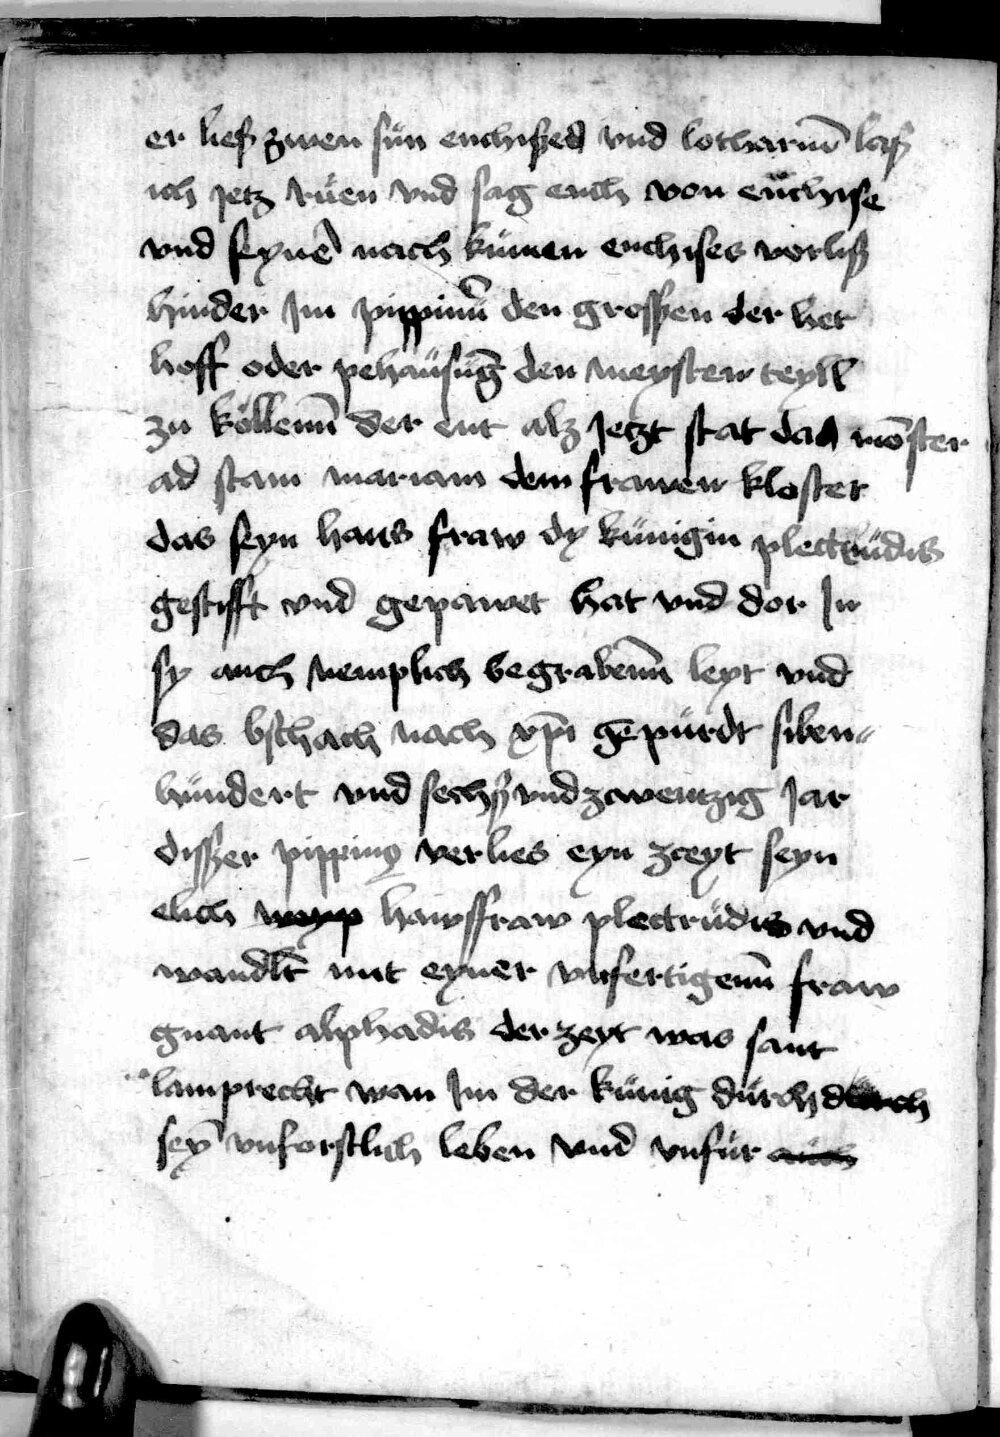 er ließ zwen sün enchißed vnd lotharium̄ laß
ich jetz rüen vnd sag euch von enchise
vnd seynē nach kümen enchises verließ
hinder Im pippinū den grossen der het
hoff oder pehaüsūg den meysten teyll
zu köllenn̄ der ent alz jetzt stat das mōster
ad stam mariam dem frawen kloster
das seyn haus fraw dy künigin plectrüdis
gestifft vnd gepawet hat vnd dor In
sy auch nemplich begrabenn̄ leyt vnd
das bschach nach xp̄i gepürdt siben〃
hündert vnd sechß vnd zwentzig Jar
disser pippinꝰ verlies eyn zceyt seyn
elich weyp hawsfraw plectrüdis vnd
wandlt̄ mit eyner vnfertigenn̄ fraw
gnant alphadis der zeyt was sant
lamprecht wan Im der künig dürch dürch
seȳ vnforstlich leben vnd vnfür